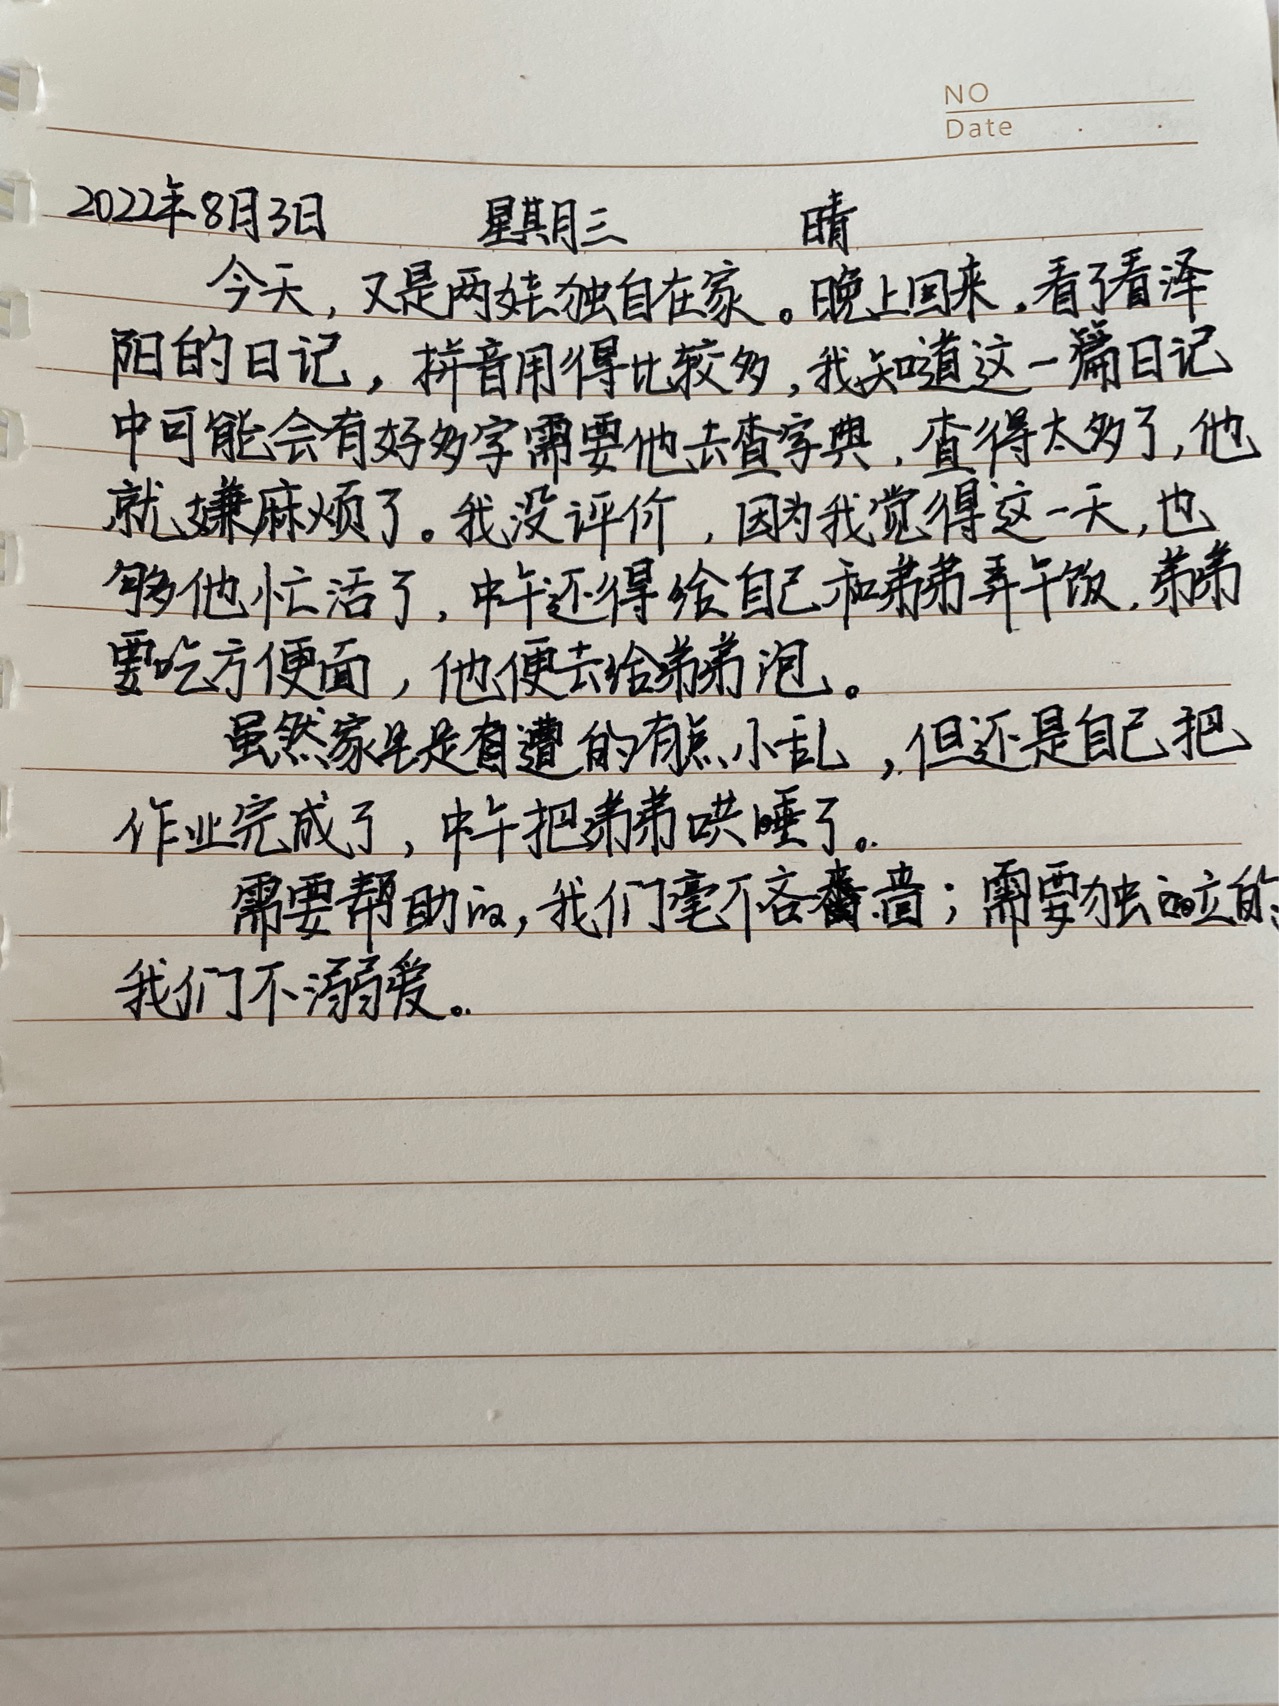 NO
Date
2022年8月3日 星期三 晴
今天，又是两娃独自在家。晚上回来，看了看泽
阳的日记，拼音用得比较多，我知道这一篇日记
中可能会有好多字需要他去查字典，查得太多了，他
就嫌麻烦了。我没评价，因为我觉得这一天，也
够他忙活了，中午还得给自己和弟弟弄午饭，弟弟
要吃方便面，他便去给弟弟泡。
虽然家里是遭的有点小乱，但还是自己把
作业完成了，中午把弟弟哄睡了。
需要帮助的，我们毫不吝啬；需要独立的，
我们不溺爱。